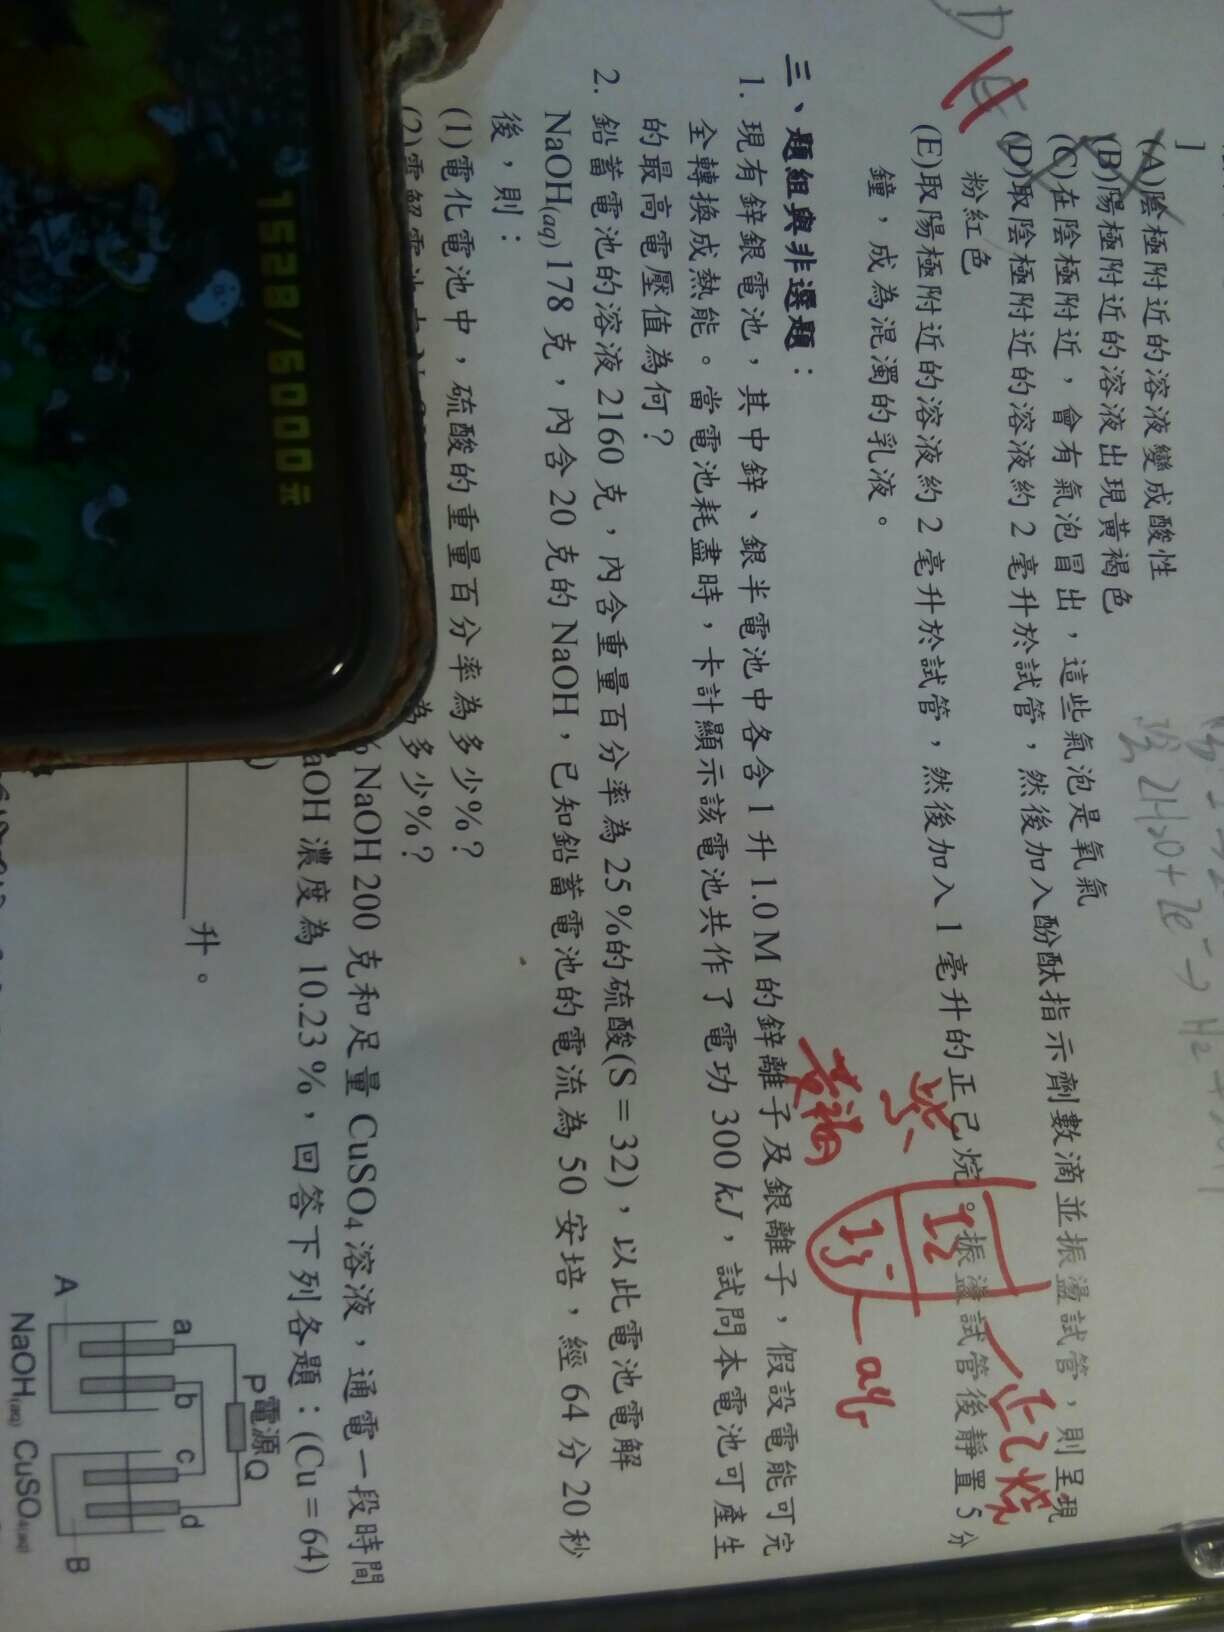 (A)陰極附近的溶液變成酸性
(B)陽極附近的溶液出現黃褐色
(C)在陰極附近，會有氣泡冒出，這些氣泡是氧氣
(D)取陰極附近的溶液約 2 毫升於試管，然後加入酚酞指示劑數滴並振盪試管，則呈現
粉紅色
(E)取陽極附近的溶液約 2 毫升於試管，然後加入 1 毫升的正己烷。振盪試管後靜置 5 分
鐘，成為混濁的乳液。
2H₂O+2e⁻→H₂
紫
黃褐
I₂
I₃⁻
aq
正己烷
三、題組與非選題：
1. 現有鋅銀電池，其中鋅、銀半電池中各含 1 升 1.0 M 的鋅離子及銀離子，假設電能可完
全轉換成熱能。當電池耗盡時，卡計顯示該電池共作了電功 300 kJ，試問本電池可產生
的最高電壓值為何？
2. 鉛蓄電池的溶液 2160 克，內含重量百分率為 25 %的硫酸(S = 32)，以此電池電解
NaOH(aq) 178 克，內含 20 克的 NaOH，已知鉛蓄電池的電流為 50 安培，經 64 分 20 秒
後，則：
(1)電化電池中，硫酸的重量百分率為多少%？
(2)電解電池中 為多少%？
% NaOH 200 克和足量 CuSO₄ 溶液，通電一段時間
aOH 濃度為 10.23 %，回答下列各題：(Cu = 64)
升。
P電源Q
a b c d
A B
NaOH(aq) CuSO₄(aq)
1528/6000元